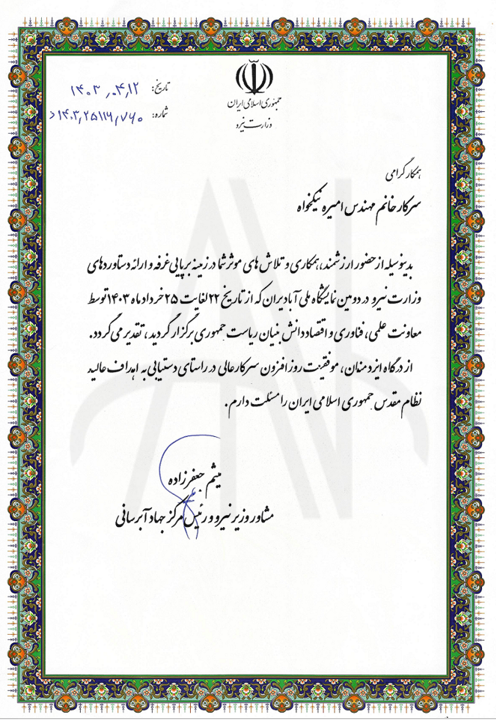 جمهوری اسلامی ایران
وزارت نیرو
تاریخ: ۱۴۰۳,۰۴,۱۲
شماره:
همکار گرامی
سرکار خانم مهندس امیره نیکخواه
بدینوسیله از حضور ارزشمند، همکاری و تلاش های موثر شما در زمینه برپایی غرفه و ارائه دستاوردهای
وزارت نیرو در دومین نمایشگاه ملی آبادیران که از تاریخ ۲۲ لغایت ۲۵ خرداد ماه ۱۴۰۳ توسط
معاونت علمی، فناوری و اقتصاد دانش بنیان ریاست جمهوری برگزار گردید، تقدیر می گردد.
از درگاه ایزد منان، موفقیت روزافزون سرکارعالی در راستای دستیابی به اهداف عالیه
نظام مقدس جمهوری اسلامی ایران را مسئلت دارم.
میثم جعفرزاده
مشاور وزیر نیرو و رئیس مرکز جهاد آبرسانی